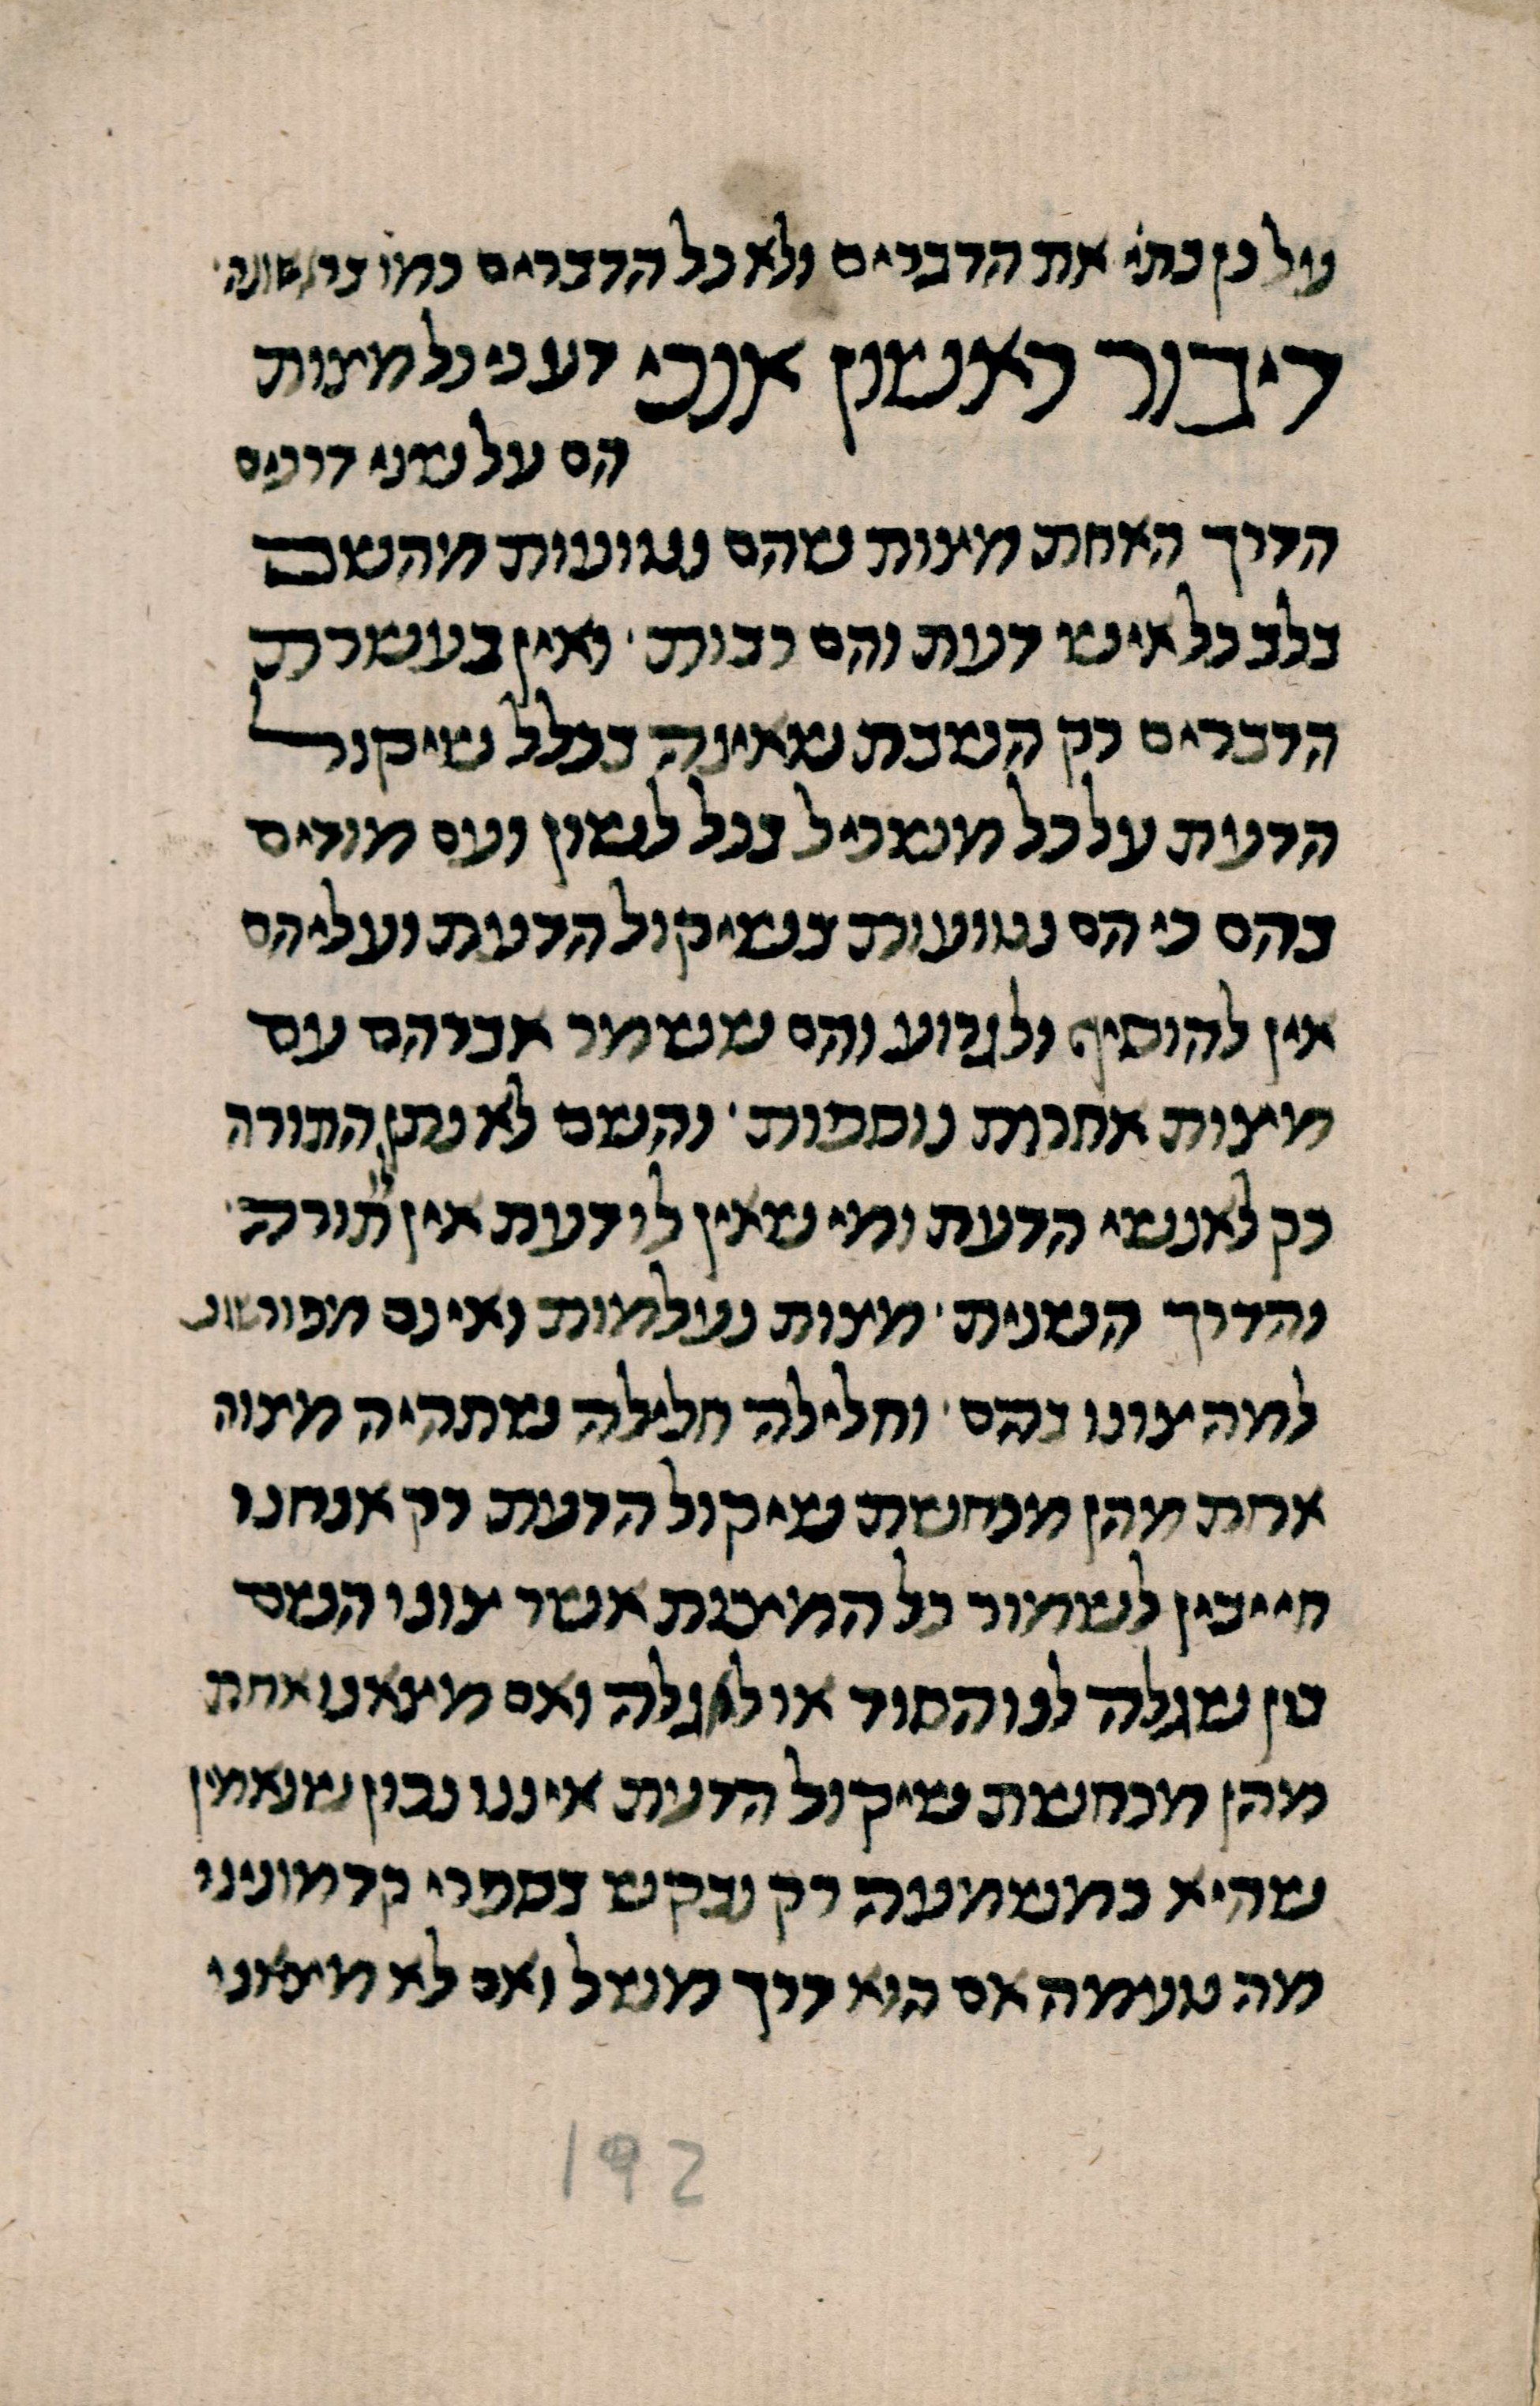 על כן כתי את הדברים ולא כל הדברים כמו בראשונה·
דיבור ראשון אנכי דע כי כל מצות
הם על שני דרכים
הדרך האחת מצות שהם נטועות מהשם
בלב כל איש דעת והם רבות· ואין בעשרת
הדברים רק השבת שאינה בכלל שיקול
הדעת על כל משכיל בכל לשון ועם מודים
בהם כי הם נטועות בשיקול הדעת ועליהם
אין להוסיף ולגרוע והם ששמר אברהם עם
מצות אחרות נוספות· והשם לא נתן התורה
רק לאנשי הדעת ומי שאין לו דעת אין תורה·
והדרך השנית· מצות נעלמות ואינם מפורשות
למה צונו בהם· וחלילה חלילה שתהיה מצוה
אחת מהן מכחשת שיקול הדעת רק אנחנו
חייבין לשמור כל המצות אשר צונו השם
בין שגלה לנו הסוד או לא גלה ואם מצאנו אחת
מהן מכחשת שיקול הדעת איננו נכון שנאמין
שהיא כמשמעה רק נבקש בספרי קדמונינו
מה טעמה אם הוא דרך משל ואם לא מצאנו
192